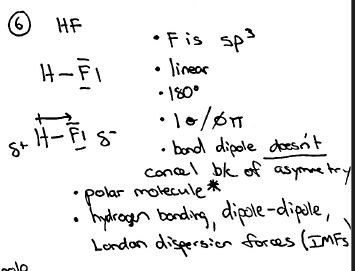 ⑥ HF
• F is sp³
H–F̲̅|
• linear
• 180°
• 1σ/∅π
δ+ H–F̲̅| δ-
• bond dipole doesn't
cancel b/c of asymmetry
• polar molecule*
• hydrogen bonding, dipole-dipole,
London dispersion forces (IMFs